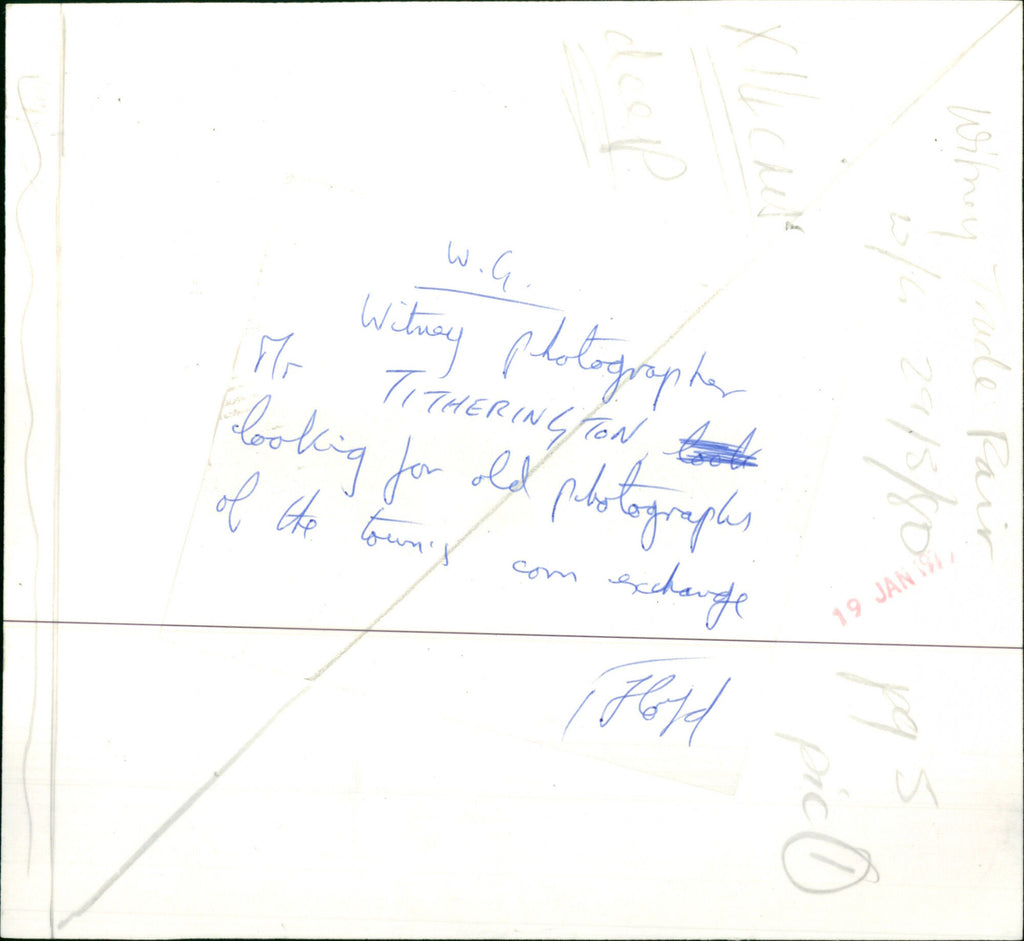 W.G.
Witney photographer
Mr TITHERINGTON
looking for old photographs
of the town's corn exchange
Floyd
deep
Witney Trade Fair
w/e 29/5/80
19 JAN
pg 5
pic 1